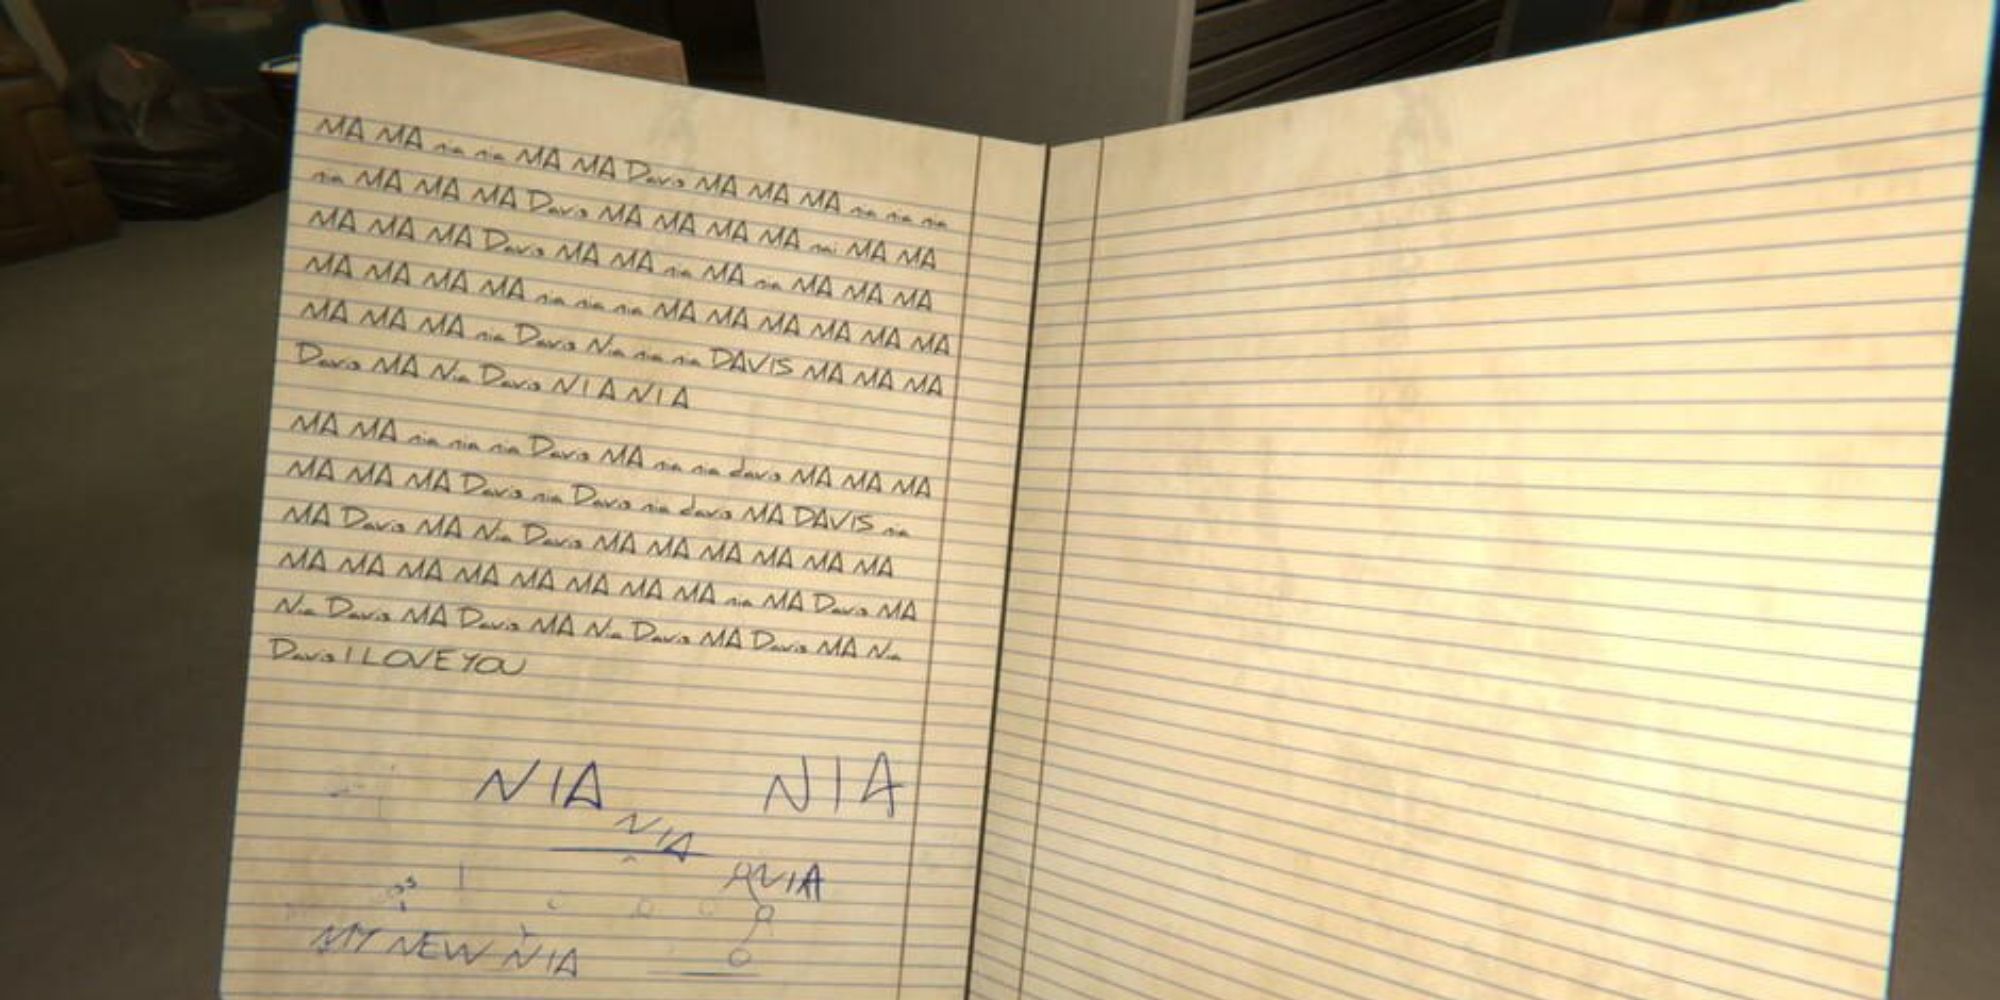 MA MA nia nia MA MA Davis MA MA MA nia nia nia
nia MA MA MA Davis MA MA MA MA nai MA MA
MA MA MA Davis MA MA nia MA nia MA MA MA
MA MA MA MA nia nia nia MA MA MA MA MA MA
MA MA MA nia Davis Nia nia nia DAVIS MA MA MA
Davis MA Nia Davis NIA NIA
MA MA nia nia nia Davis MA nia nia davis MA MA MA
MA MA MA Davis nia Davis nia davis MA DAVIS nia
MA Davis MA Nia Davis MA MA MA MA MA MA
MA MA MA MA MA MA MA MA nia MA Davis MA
Nia Davis MA Davis MA Nia Davis MA Davis MA Nia
Davis I LOVE YOU
NIA NIA
NIA
NIA
MY NEW NIA